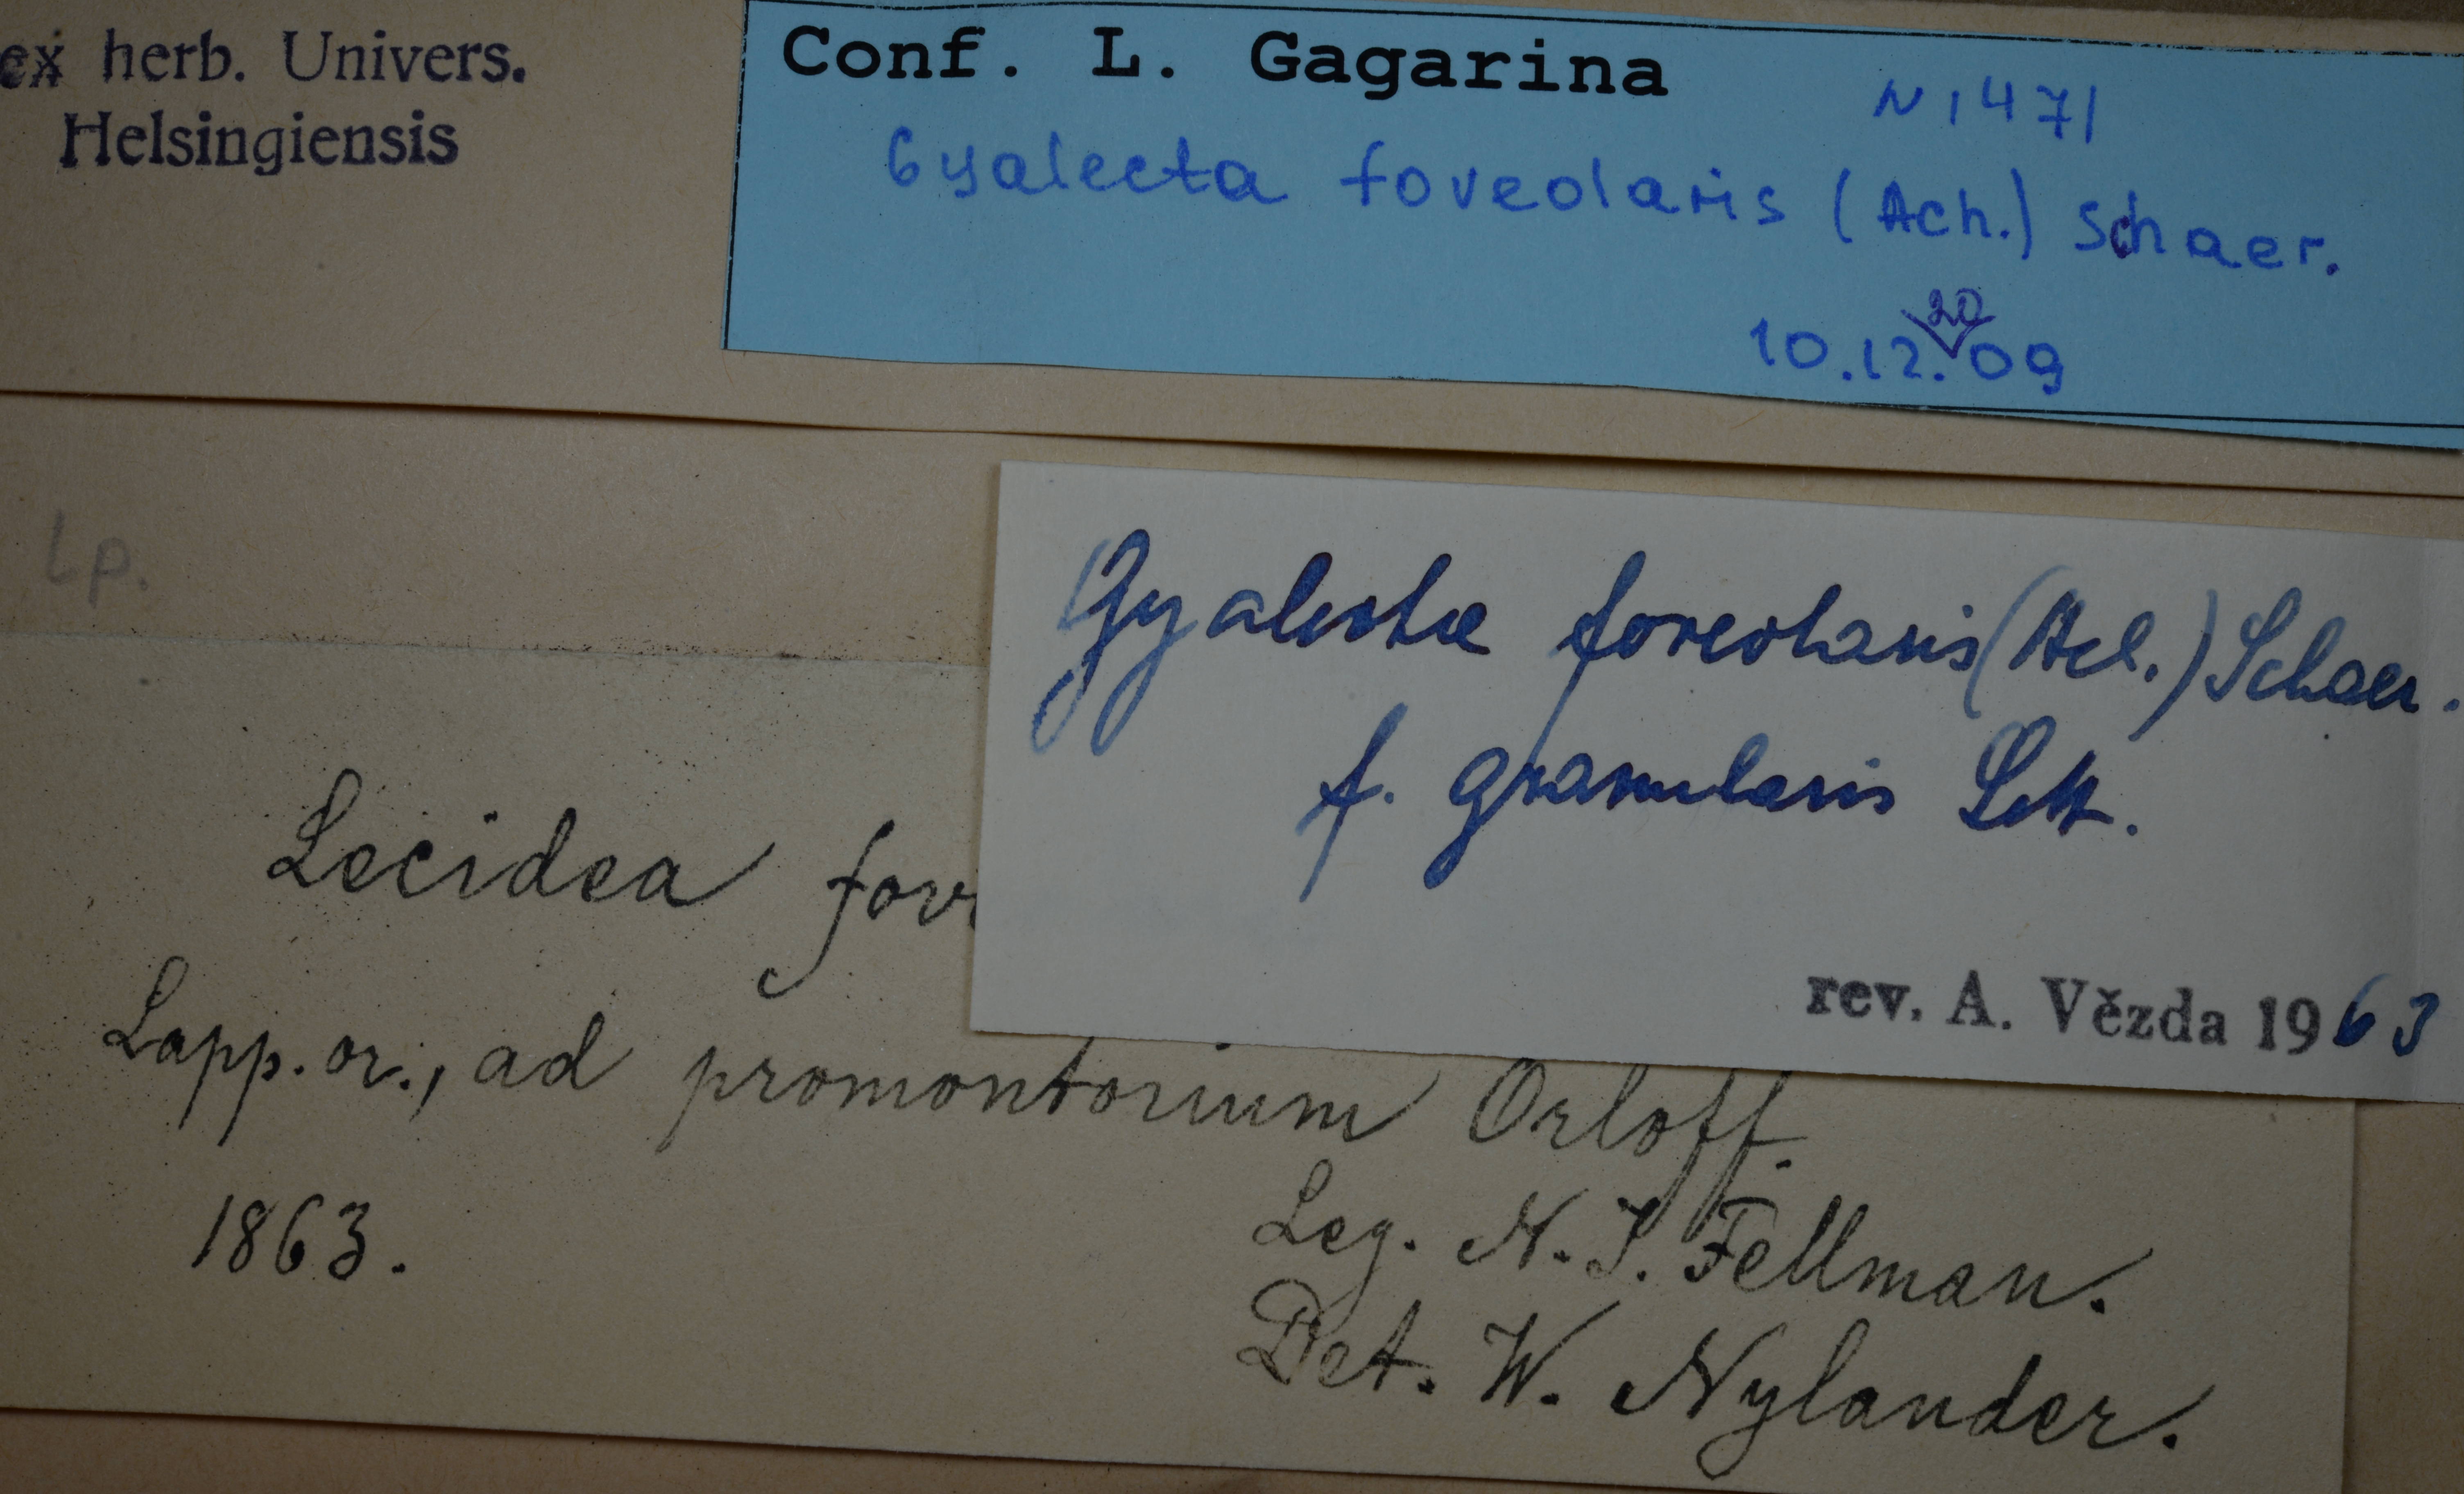 ex herb. Univers.
Helsingiensis
Conf. L. Gagarina
N 1471
Gyalecta foveolaris (Ach.) Schaer.
10.12.2009
Lp.
Gyalecta foveolaris (Ach.) Schaer.
f. granularis Lett.
rev. A. Vězda 1963
Lecidea
Lapp. or., ad promontorium Orloff.
1863.
Leg. N. I. Fellman.
Det. W. Nylander.